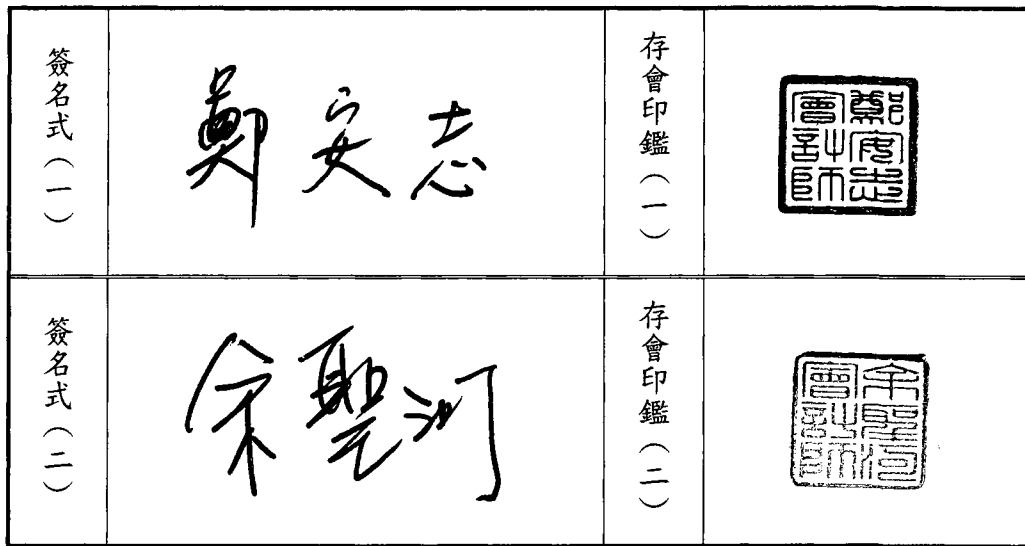 簽名式（一）
鄭安志
存會印鑑（一）
鄭安志
會計師
簽名式（二）
余聖河
存會印鑑（二）
余聖河
會計師